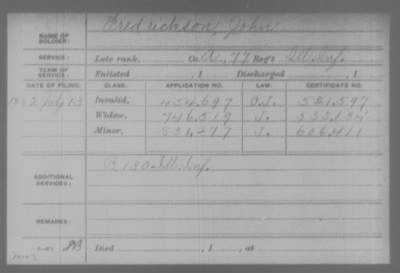 NAME OF SOLDIER: Fredrickson, John
SERVICE: Late rank, Co. A, 77 Reg't Ill. Inf.
TERM OF SERVICE: Enlisted , 1 Discharged , 1
DATE OF FILING. CLASS. APPLICATION NO. LAW. CERTIFICATE NO.
1882 July 13 Invalid, 454,697
Widow, 746,519
Minor, 831,277 606,411
ADDITIONAL SERVICES: B 130 Ill. Inf.
REMARKS:
Died , 1 , at